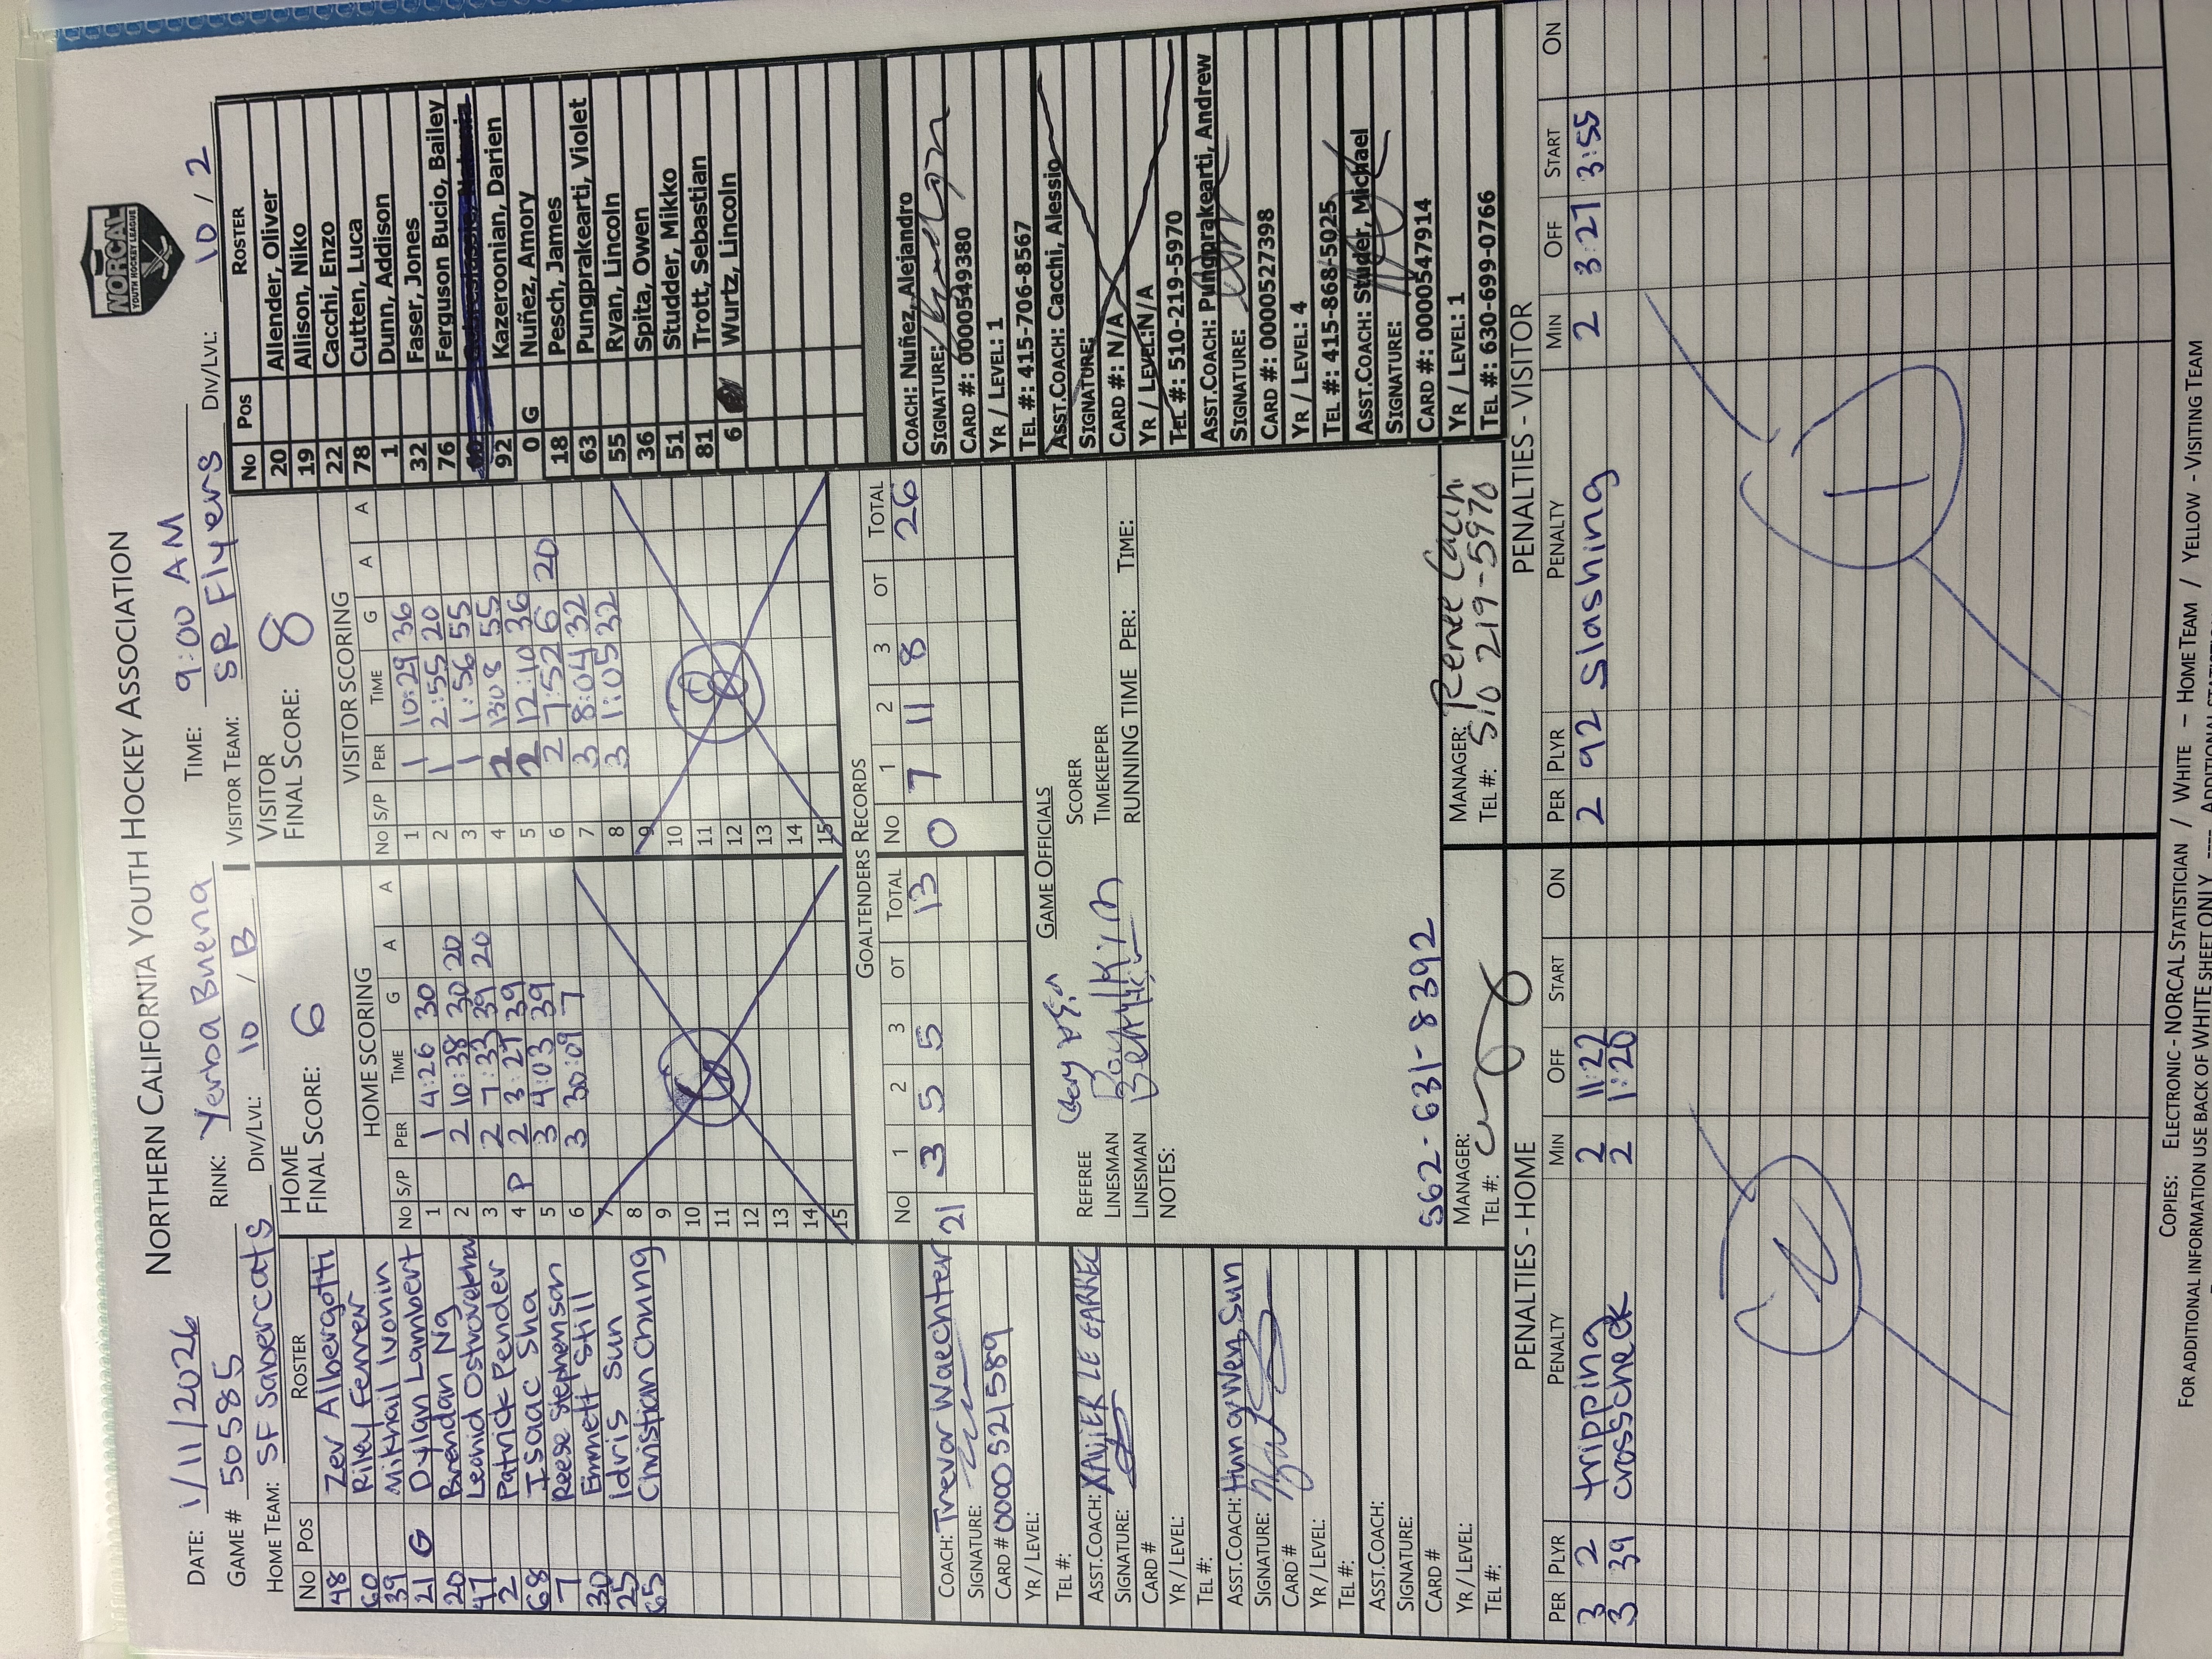 NORTHERN CALIFORNIA YOUTH HOCKEY ASSOCIATION
NORCAL
YOUTH HOCKEY LEAGUE
DATE: 1/11/2026 RINK: Yerba Buena TIME: 9:00 AM
GAME # 50585 DIV/LVL: 10 / B VISITOR TEAM: SR Flyers DIV/LVL: 10 / 2
HOME TEAM: SF Sabercats
HOME FINAL SCORE: 6
VISITOR FINAL SCORE: 8
NO POS ROSTER
48 Zev Albergotti
60 Riley Fenner
39 Mikhail Ivonin
21 G Dylan Lambert
20 Brendan Ng
47 Leonid Ostroverkha
2 Patrick Pender
68 Isaac Sha
7 Reese Stephenson
30 Emmett Still
25 Idris Sun
65 Christian Chung
HOME SCORING
NO S/P PER TIME G A A
1 1 4:26 30
2 2 10:38 30 20
3 2 7:33 39 20
4 P 2 3:27 39
5 3 4:03 39
6 3 30:09 7
7
8
9
10
11
12
13
14
15
VISITOR SCORING
NO S/P PER TIME G A A
1 1 10:29 36
2 1 2:55 20
3 1 1:56 55
4 2 13:08 55
5 2 12:10 36
6 2 7:52 6 20
7 3 8:04 32
8 3 1:05 32
9
10
11
12
13
14
15
NO POS ROSTER
20 Allender, Oliver
19 Allison, Niko
22 Cacchi, Enzo
78 Cutten, Luca
1 Dunn, Addison
32 Faser, Jones
76 Ferguson Bucio, Bailey
92 Kazeroonian, Darien
0 G Nuñez, Amory
18 Pesch, James
63 Pungprakearti, Violet
55 Ryan, Lincoln
36 Spita, Owen
51 Studder, Mikko
81 Trott, Sebastian
6 Wurtz, Lincoln
GOALTENDERS RECORDS
NO 1 2 3 OT TOTAL
21 3 5 5 13
NO 1 2 3 OT TOTAL
0 7 11 8 26
COACH: Trevor Waechter
SIGNATURE:
CARD # 0000521589
YR / LEVEL:
TEL #:
ASST.COACH: XAVIER LE GARREC
SIGNATURE:
CARD #
YR / LEVEL:
TEL #:
ASST.COACH: Hung Wen, Sun
SIGNATURE:
CARD #
YR / LEVEL:
TEL #:
ASST.COACH:
SIGNATURE:
CARD #
YR / LEVEL:
TEL #:
GAME OFFICIALS
REFEREE SCORER
LINESMAN TIMEKEEPER
LINESMAN RUNNING TIME PER: TIME:
NOTES:
562-631-8392
MANAGER:
TEL #:
MANAGER: Renee
TEL #: 510 219-5970
COACH: Nuñez, Alejandro
SIGNATURE:
CARD #: 0000549380
YR / LEVEL: 1
TEL #: 415-706-8567
ASST.COACH: Cacchi, Alessio
SIGNATURE:
CARD #: N/A
YR / LEVEL:N/A
TEL #: 510-219-5970
ASST.COACH: Pungprakearti, Andrew
SIGNATURE:
CARD #: 0000527398
YR / LEVEL: 4
TEL #: 415-868-5025
ASST.COACH: Studer, Michael
SIGNATURE:
CARD #: 0000547914
YR / LEVEL: 1
TEL #: 630-699-0766
PENALTIES - HOME
PER PLYR PENALTY MIN OFF START ON
3 2 tripping 2 11:22
3 39 crosscheck 2 1:20
2
PENALTIES - VISITOR
PER PLYR PENALTY MIN OFF START ON
2 92 Slashing 2 3:27 3:55
1
COPIES: ELECTRONIC - NORCAL STATISTICIAN / WHITE - HOME TEAM / YELLOW - VISITING TEAM
FOR ADDITIONAL INFORMATION USE BACK OF WHITE SHEET ONLY